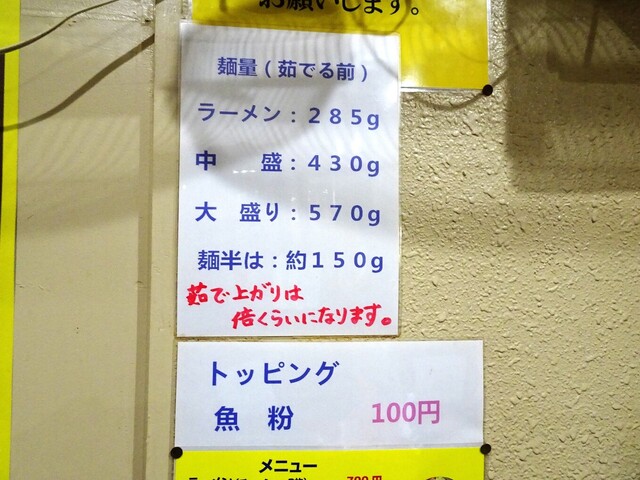 お願いします。
麺量（茹でる前）
ラーメン：２８５g
中　盛：４３０g
大　盛り：５７０g
麺半は：約１５０g
茹で上がりは
倍くらいになります。
トッピング
魚　粉　100円
メニュー